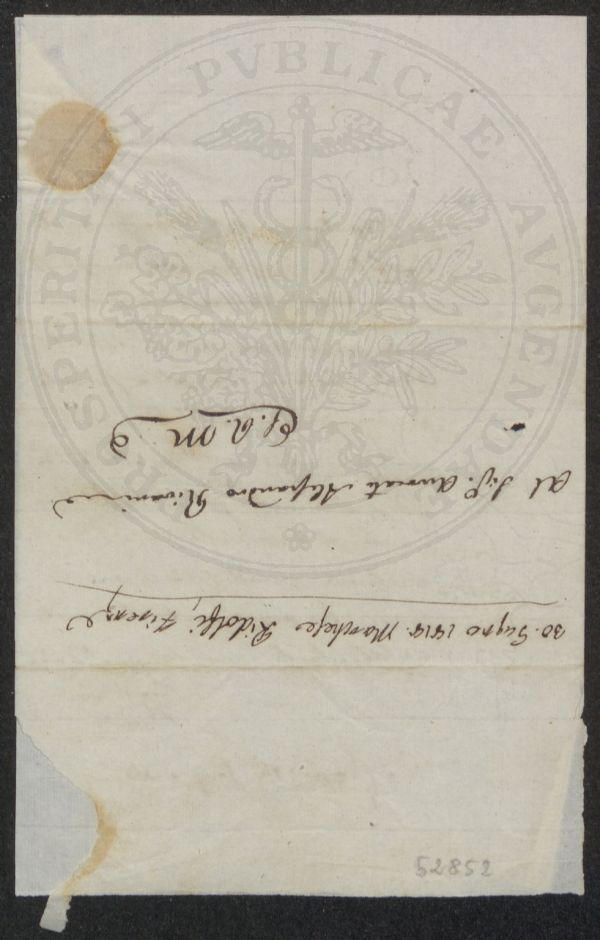 PROSPERITATI PVBLICAE AVGENDAE
30. Giugno 1818. Marchese Ridolfi, Firenze
Al Sig.r Avvocato Alessandro Rivani
S. P. M.
52852